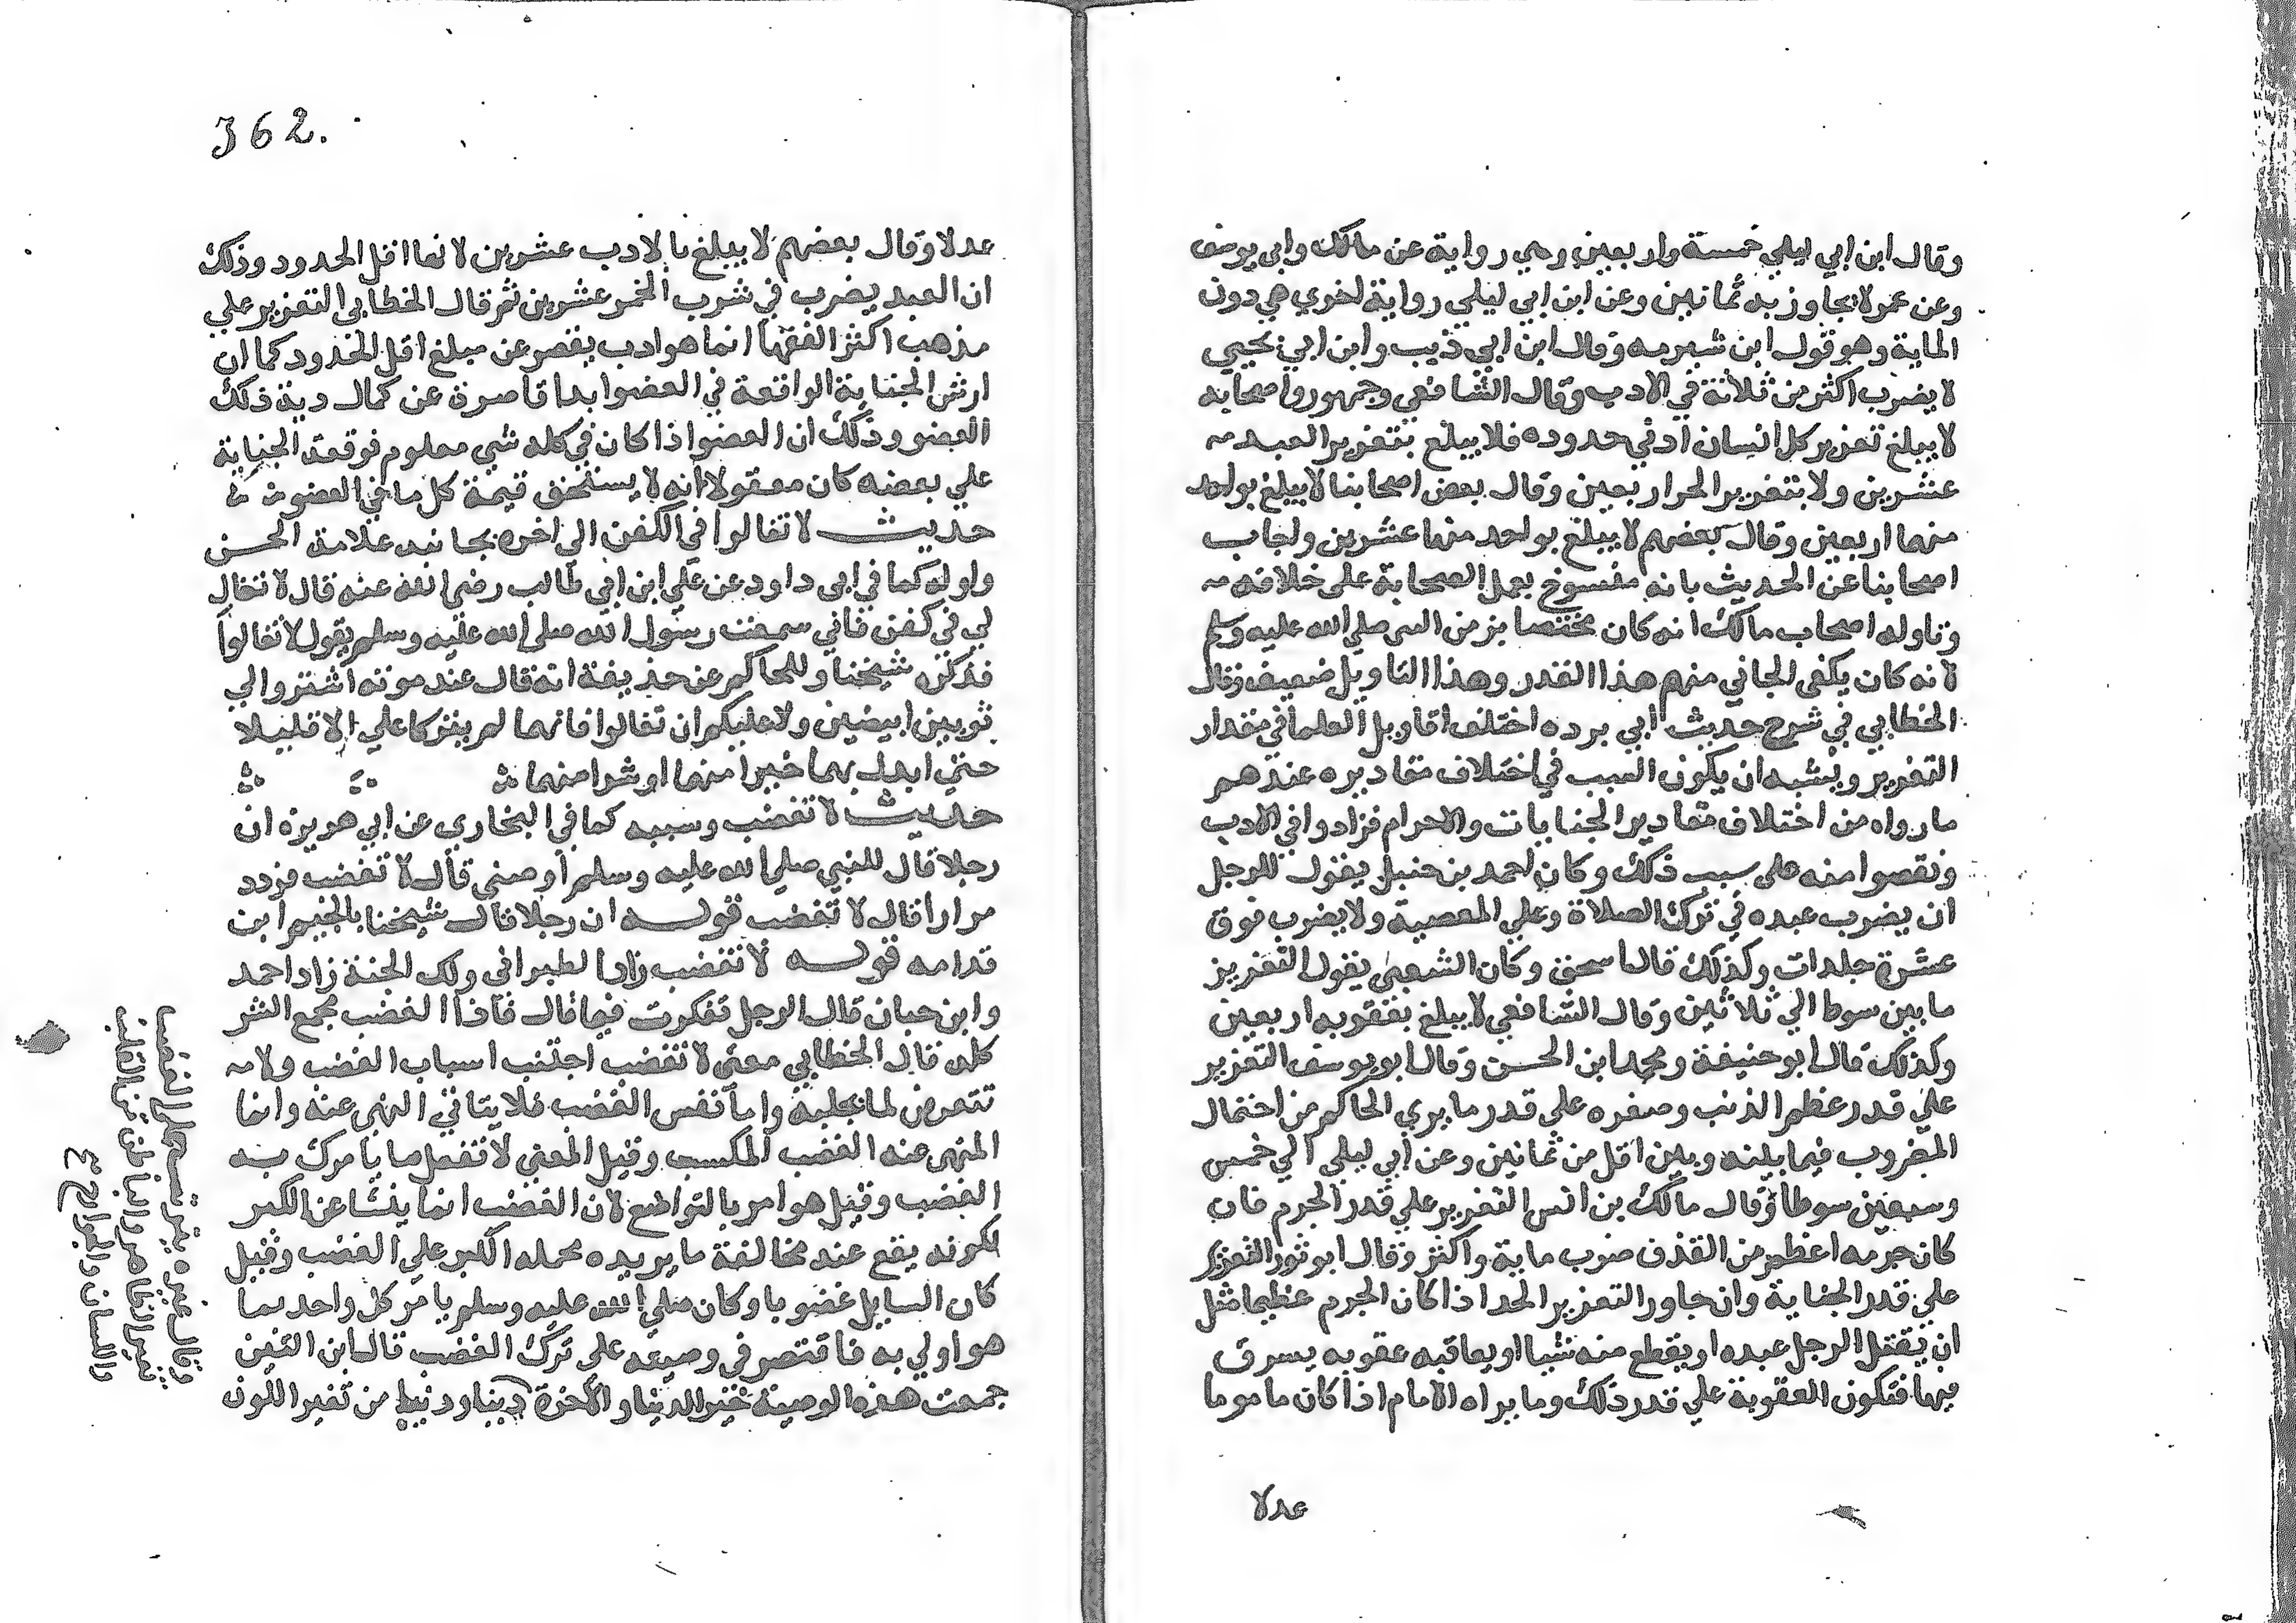 وقال ابن ابي ليلي خمسة واربعين وهي رواية عن مالك وابي يوسف
وعن عمر لا يجاوز به ثمانين وعن ابن ابي ليلي رواية اخري هي دون
الماية وهو قول ابن شبرمه وقال ابن ابي ذيب وابن ابي يحيي
لا يضرب اكثر من ثلاثة في الادب وقال الشافعي وجمهور اصحابه
لا يبلغ تعزير كل انسان ادني حدوده فلا يبلغ بتعزير العبد
عشرين ولا بتعزير الحر اربعين وقال بعض اصحابنا لا يبلغ بواحد
منهما اربعين وقال بعضهم لا يبلغ بواحد منهما عشرين واجاب
اصحابنا عن الحديث بانه منسوخ بعمل الصحابة على خلافه
وتاوله اصحاب مالك انه كان مختصا بزمن النبي صلي الله عليه وسلم
لانه كان يكفي الجاني منهم هذا القدر وهذا التاويل ضعيف وقال
الخطابي في شرح حديث ابي برده اختلف اقاويل العلما في مقدار
التعزير ويشبه ان يكون السبب في اختلاف مقاديره عندهم
ما رواه من اختلاف مقادير الجنايات والاجرام فزادوا في الادب
ونقصوا منه على سبب ذلك وكان احمد بن حنبل يقول للرجل
ان يضرب عبده في ترك الصلاة وعلي المعصية ولا يضرب فوق
عشرة جلدات وكذلك قال اسحق وكان الشعبي يقول التعزير
ما بين سوط الي ثلاثين وقال الشافعي لا يبلغ بعقوبه اربعين
وكذلك قال ابو حنيفة ومحمد ابن الحسن وقال ابو يوسف التعزير
علي قدر عظم الذنب وصغره علي قدر ما يري الحاكم من احتمال
المضروب فيما بينه وبين اقل من ثمانين وعن ابي ليلي الي خمس
وسبعين سوطا وقال مالك بن انس التعزير علي قدر الجرم فان
كان جرمه اعظم من القذف ضرب ماية واكثر وقال ابو ثور التعزير
علي قدر الجناية وان جاوز التعزير الحد اذا كان الجرم عظيما مثل
ان يقتل الرجل عبده او يقطع منه شيا او يعاقبه عقوبه يسرف
فيها فتكون العقوبة علي قدر ذلك وما يراه الامام اذا كان مامونا
عدلا
362.
عدلا وقال بعضهم لا يبلغ بالادب عشرين لانها اقل الحدود وذلك
ان العبد يضرب في شرب الخمر عشرين ثم قال الخطابي التعزير علي
مذهب اكثر الفقها انما هو ادب يقصر عن مبلغ اقل الحدود كما ان
ارش الجناية الواقعة في العضو ابدا قاصرة عن كمال دية ذلك
العضو وذلك ان العضو اذا كان في كله شي معلوم فوقعت الجناية
علي بعضه كان معقولا انه لا يستحق قيمة كل ما في العضو
حديث لا تغالوا في الكفن الى اخره بجانبه علامة الحسن
واوله كما في ابي داود عن علي ابن ابي طالب رضي الله عنه قال لا تغال
لي في كفن فاني سمعت رسول الله صلى الله عليه وسلم يقول لا تغالوا
فذكره شيخنا وللحاكم عن حذيفة انه قال عند موته اشتروا لي
ثوبين ابيضين ولا عليكم ان تغالوا فانهما لم يتركا علي الا قليلا
حتي ابدل بهما خيرا منهما او شرا منهما
حديث لا تغضب وسببه كما في البخاري عن ابي هريرة ان
رجلا قال للنبي صلي الله عليه وسلم اوصني قال لا تغضب فردد
مرارا قال لا تغضب قوله ان رجلا قال شيخنا بالجيم ابن
قدامه قوله لا تغضب زاد الطبراني ولك الجنة زاد احمد
وابن حبان قال الرجل تفكرت فيما قال فاذا الغضب مجمع الشر
كله قال الخطابي معنى لا تغضب اجتنب اسباب الغضب ولا
تتعرض لما يجلبه واما نفس الغضب فلا يتاتي النهي عنه وانما
المنهي عنه الغضب المكتسب وقيل المعني لا تفعل ما يامرك به
الغضب وقيل هو امر بالتواضع لان الغضب انما ينشا عن الكبر
لكونه يقع عند مخالفة ما يريده محمله الكبر علي الغضب وقيل
كان السايل غضوبا وكان صلي الله عليه وسلم يامر كل واحد بما
هو اولي به فاقتصر في وصيته على ترك الغضب قال ابن التين
جمعت هذه الوصية خير الدنيا والاخرة دينا ودنيا من تغير اللون
وقال غيره يترتب على الغضب
شين الظاهر والباطن من القلب
واللسان والجوارح